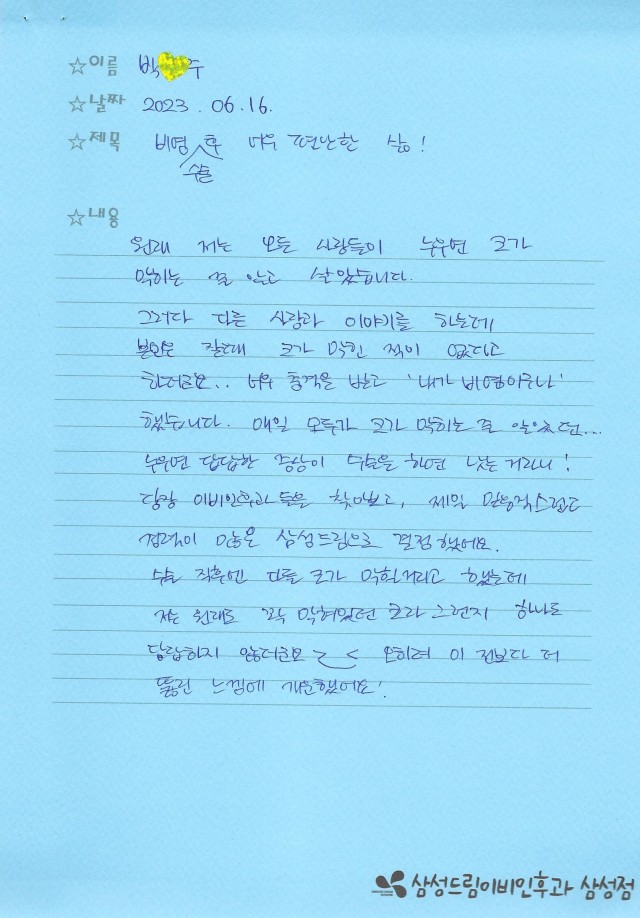 ☆이름 박 주
☆날짜 2023. 06. 16.
☆제목 비염 수술 후 너무 편안한 삶!
☆내용
원래 저는 모든 사람들이 누우면 코가
막히는 줄 알고 살았습니다.
그러다 다른 사람과 이야기를 하는데
본인은 잘때 코가 막힌 적이 없다고
하더라고요.. 너무 충격을 받고 '내가 비염이구나'
했습니다. 매일 모두가 코가 막히는 줄 알았던...
누우면 답답한 증상이 수술을 하면 낫는 거라니!
당장 이비인후과들을 찾아보고, 제일 믿음직스럽고
경력이 많은 삼성드림으로 결정했어요.
수술 직후엔 다들 코가 막힐거라고 했는데
저는 원래도 꽉 막혀있던 코라 그런지 하나도
답답하지 않더라고요 >_< 오히려 이 전보다 더
뚫린 느낌에 개운했어요!
삼성드림이비인후과 삼성점